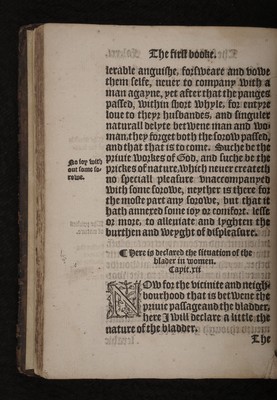 The first booke.
lerable anguishe, forsweare and vowe
them selfe, neuer to company with a
man agayne, yet after that the panges
passed, within short whyle, for entyre
loue to theyr husbandes, and singuler
naturall delyte betwene man and wo-
man, they forget both the sorow passed,
and that that is to come. Suche be the
priuie workes of God, and suche be the
prickes of nature, which neuer createth
no speciall pleasure vnaccompanyed
with some sorowe, neyther is there for
the moste part any sorowe, but that it
hath annexed some ioy or comfort, lesse
or more, to alleuiate and lyghten the
burthen and weyght of displeasure.
No ioy with
out some so-
rowe.
¶ Here is declared the situation of the
blader in women.
Capit. xii
NOw for the vicinite and neigh
bourhood that is betwene the
priuie passage and the bladder,
here I will declare a little the
nature of the bladder.
The